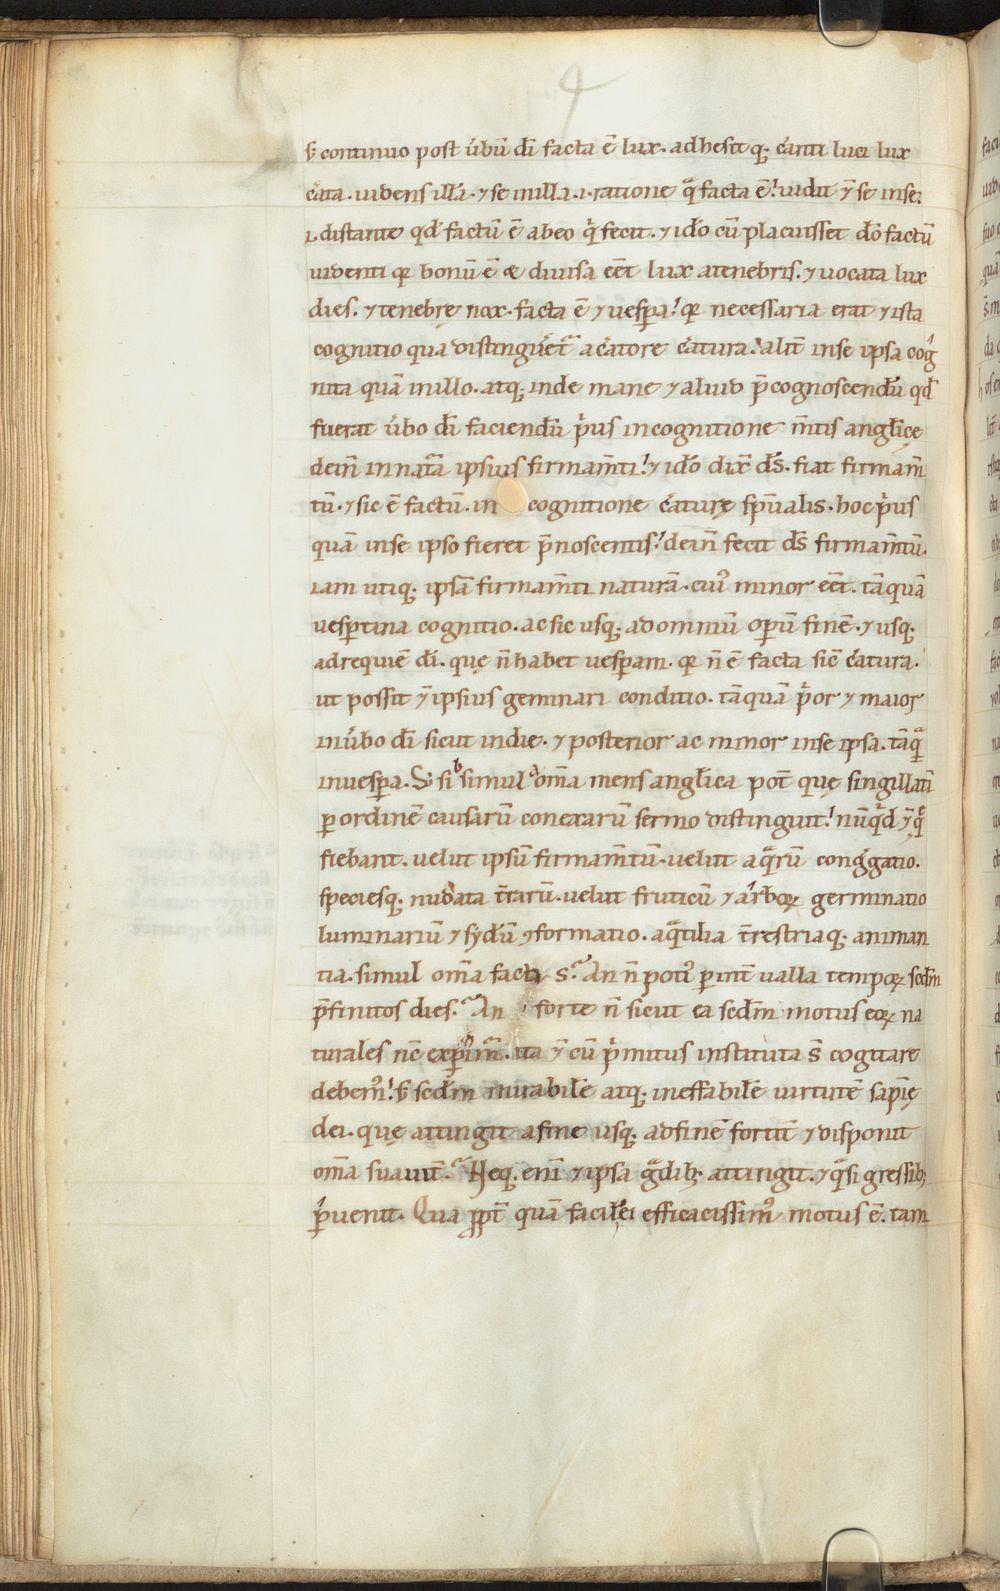 s̄ continuo post u̇bū dī facta ē lux. adhesit q; c̄anti luci lux
c̄ata. uidens illā. ⁊ se in illa. .i. ratione qͣ facta ē! uidit ⁊̄ se in se.
.i. distante qd̄ factū ē ab eo qͥ fecit. ⁊ ido̅ cū placuisset dō factū
uidenti qꝛ bonū ē & diuisa eēt lux a tenebris. ⁊ uocata lux
dies. ⁊ tenebrę nox. facta ē ⁊ uesꝑa! qꝛ necessaria erat ⁊ ista
cognitio qua distingueret̄ a c̄atore c̄atura. alit̄ in se ipsa cog
nita quā in illo. atq; inde mane ⁊ aliud p̄cognoscendū qd̄
fuerat u̇bo dī faciendū pͥus in cognitione m̄tis anglicę
dein̄ in natā ipsius firmam̄ti! ⁊ ido̅ dix̄ dс̄. fiat firmam̄
tū. ⁊ sic ē factū. in cognitione c̄aturę sp̄ualis. hoc pͥus
quā in se ipso fieret p̄noscentis! dein̄ fecit dс̄ firmam̄tū.
iam utiq; ipsā firmam̄ti naturā. cuiꝰ minor eēt. tāquā
uesꝑtina cognitio. ac sic usq; ad omniū opū finē. ⁊ usq;
ad requiē dī. quę n̄ habet uesꝑam. qꝛ n̄ ē facta sic̄ c̄atura.
ut possit ⁊̄ ipsius geminari conditio. tāquā pͥor ⁊ maior
in u̇bo dī sicut in die. ⁊ posterior ac minor in se ipsa. tāqͣ
in uesꝑa. S̄ si b simul a om̄a mens anglica pot̄ quę singillatī
ꝑ ordinē causarū conexarū sermo distinguit! nūqͥd ⁊̄ qͤ
fiebant. uelut ipsū firmam̄tū. uelut aqͣrū congͤgatio.
speciesq; nudata t̄rarū. uelut fruticū ⁊ arboꝝ germinatio
luminariū ⁊ sydū ꝯformatio. aqͣtilia t̄restriaq; animan
tia. simul om̄a facta s̄? An n̄ potiꝰ ꝑ int̄ualla tempoꝝ scd̄m
p̄finitos dies? An forte n̄ sicut ea scd̄m motus eoꝝ na
turales nc̄ expim̄. ita ⁊̄ cū pͥmitus instituta s̄ cogitare
debemꝰ! s̄ scd̄m mirabilē atq; ineffabilē uirtutē sapīę
dei. quę attingit a fine usq; ad finē fortit̄ ⁊ disponit
om̄a suauit̄? Neq; enī ⁊ ipsa gͣdib; attingit. ⁊ qͣsi gressib;
ꝑuenit. Qua ꝓpt̄ quā facilēi efficacissimꝰ motus ē. tam